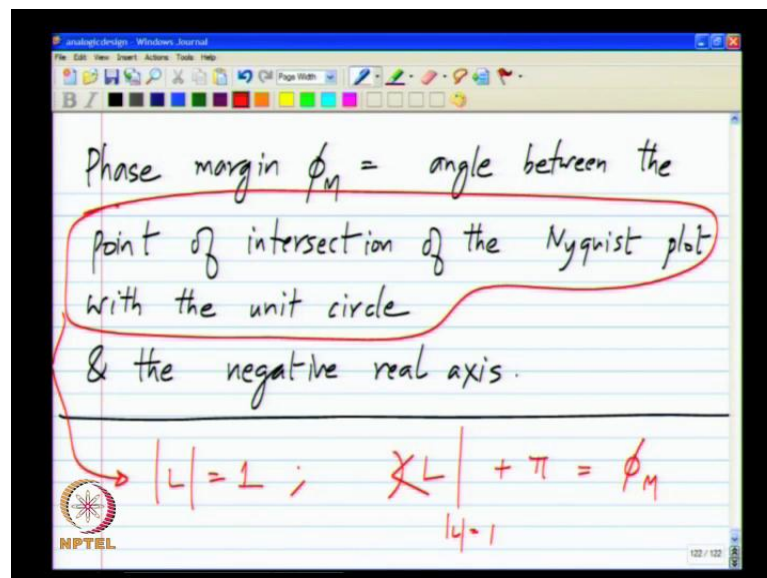 analogicdesign - Windows Journal
File Edit View Insert Actions Tools Help
Page Width
B I
Phase margin ϕ_M = angle between the
point of intersection of the Nyquist plot
with the unit circle
& the negative real axis.
|L| = 1 ; ∠L| + π = ϕ_M
|L| = 1
NPTEL
122 / 122